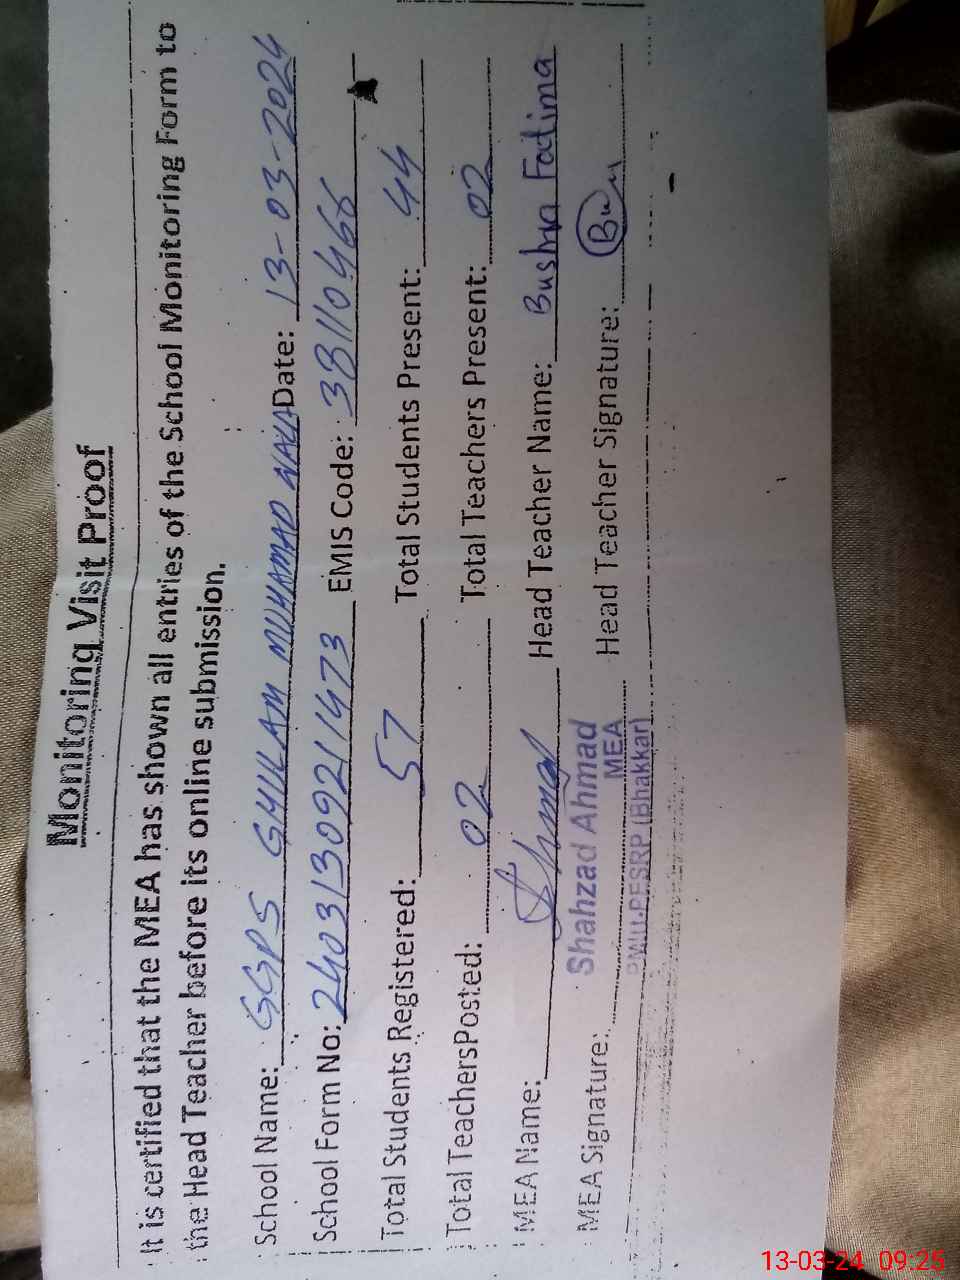 Monitoring Visit Proof
It is certified that the MEA has shown all entries of the School Monitoring Form to
the Head Teacher before its online submission.
School Name: GGPS GHULAM MUHAMAD WALA Date: 13-03-2024
School Form No: 2403130921473 EMIS Code: 38110466
Total Students Registered: 57 Total Students Present: 44
Total TeachersPosted: 02 Total Teachers Present: 02
MEA Name: Head Teacher Name: Bushra Fatima
MEA Signature: Shahzad Ahmad Head Teacher Signature:
MEA
PMIU-PESRP (Bhakkar)
13-03-24 09:25